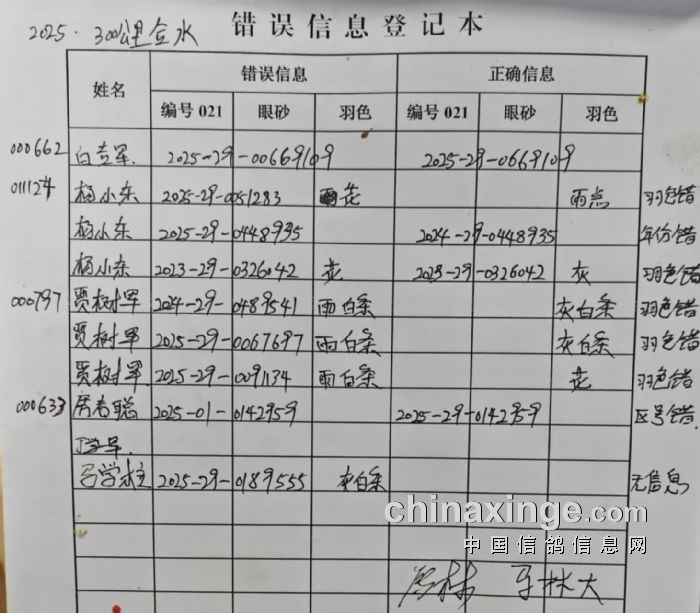 2025. 300公里金水 错误信息登记本
姓名 错误信息 正确信息
编号021 眼砂 羽色 编号021 眼砂 羽色
000662 白 军. 2025-29-00669109 2025-29-0669109
011124 杨小东 2025-29-0051283 雨花 雨点 羽色错
杨小东 2025-29-0448935 2024-29-0448935 年份错
杨小东 2023-29-0326042 花 2023-29-0326042 灰 羽色错
000797 贾树军 2024-29-0489541 雨白条 灰白条 羽色错
贾树军 2025-29-0067697 雨白条 灰白条 羽色错
贾树军. 2025-29-0091134 雨白条 花 羽色错
000633 房春聪 2025-01-0142959 2025-29-0142959 区号错.
学柱 2025-29-0189555 灰白条 无信息
chinaxinge.com
中国信鸽信息网
马林大